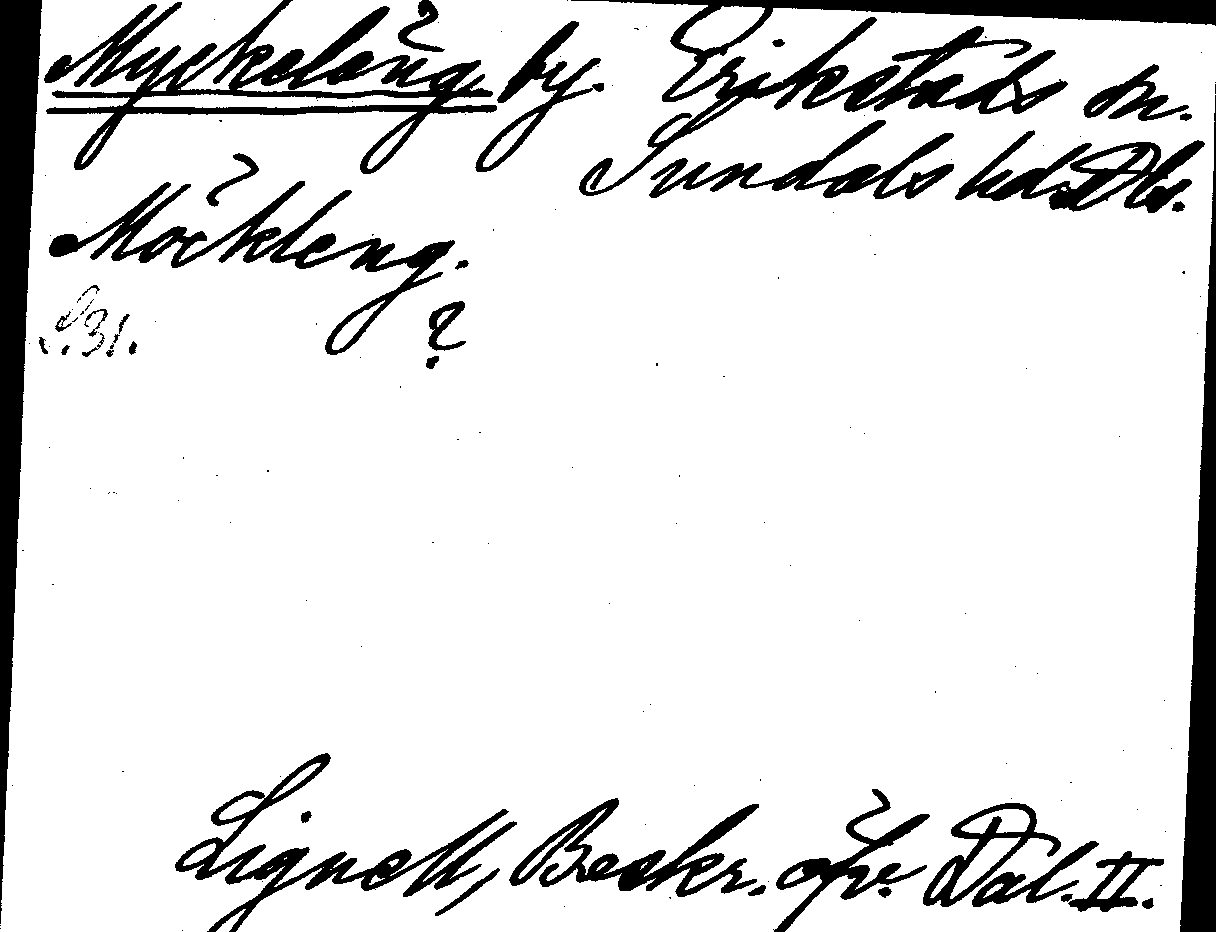 Myckeläng, by. Erikstads sn.
Sundals hd. Dls.
Möckleng.
S. 31. ?
Lignell, Beskr. öfv. Dal. II.